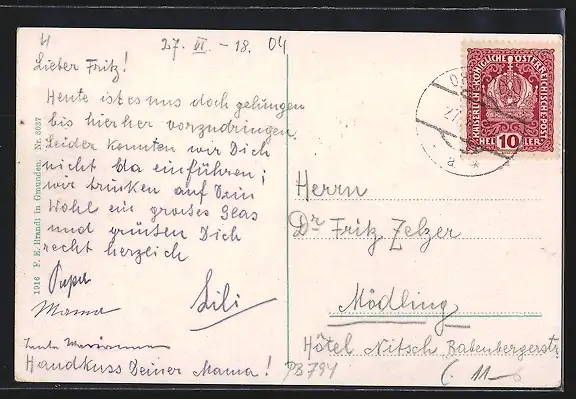 27. VI. - 18. 04
Lieber Fritz!
Heute ist es uns doch gelungen
bis hierher vorzudringen.
Leider konnten wir Dich
nicht da einführen;
wir trinken auf Dein
Wohl ein großes Glas
und grüßen Dich
recht herzlich
Papa
Mama
Lili
Handkuss Deiner Mama!
PB794
1916 F. E. Brandt in Gmunden. Nr. 8037
KAISERLICHE KÖNIGLICHE ÖSTERREICHISCHE POST
HELLER
10
a *
Herrn
Dr Fritz Zelzer
Mödling
Hôtel Nitsch Babenbergerstr.